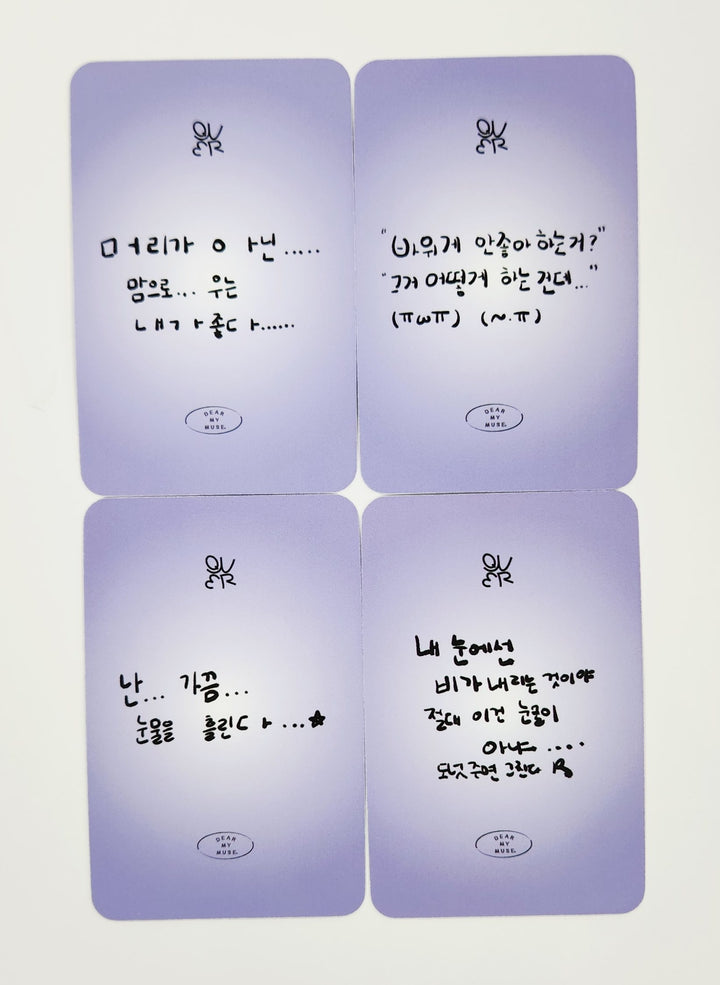 QW
ER
머리가 ㅇ ㅏ닌.....
맘으로... 우는
ㄴㅐㄱㅏ좋ㄷㅏ......
DEAR
MY
MUSE.
QW
ER
"바위게 안좋아하는거?"
"그거 어떻게 하는건데..."
(ㅠωㅠ) (~.ㅠ)
DEAR
MY
MUSE.
QW
ER
난... 가끔...
눈물을 흘린ㄷㅏ...★
DEAR
MY
MUSE.
QW
ER
내 눈에선
비가 내리는 것이야
절대 이건 눈물이
아냐....
도넛주면 그친다
DEAR
MY
MUSE.